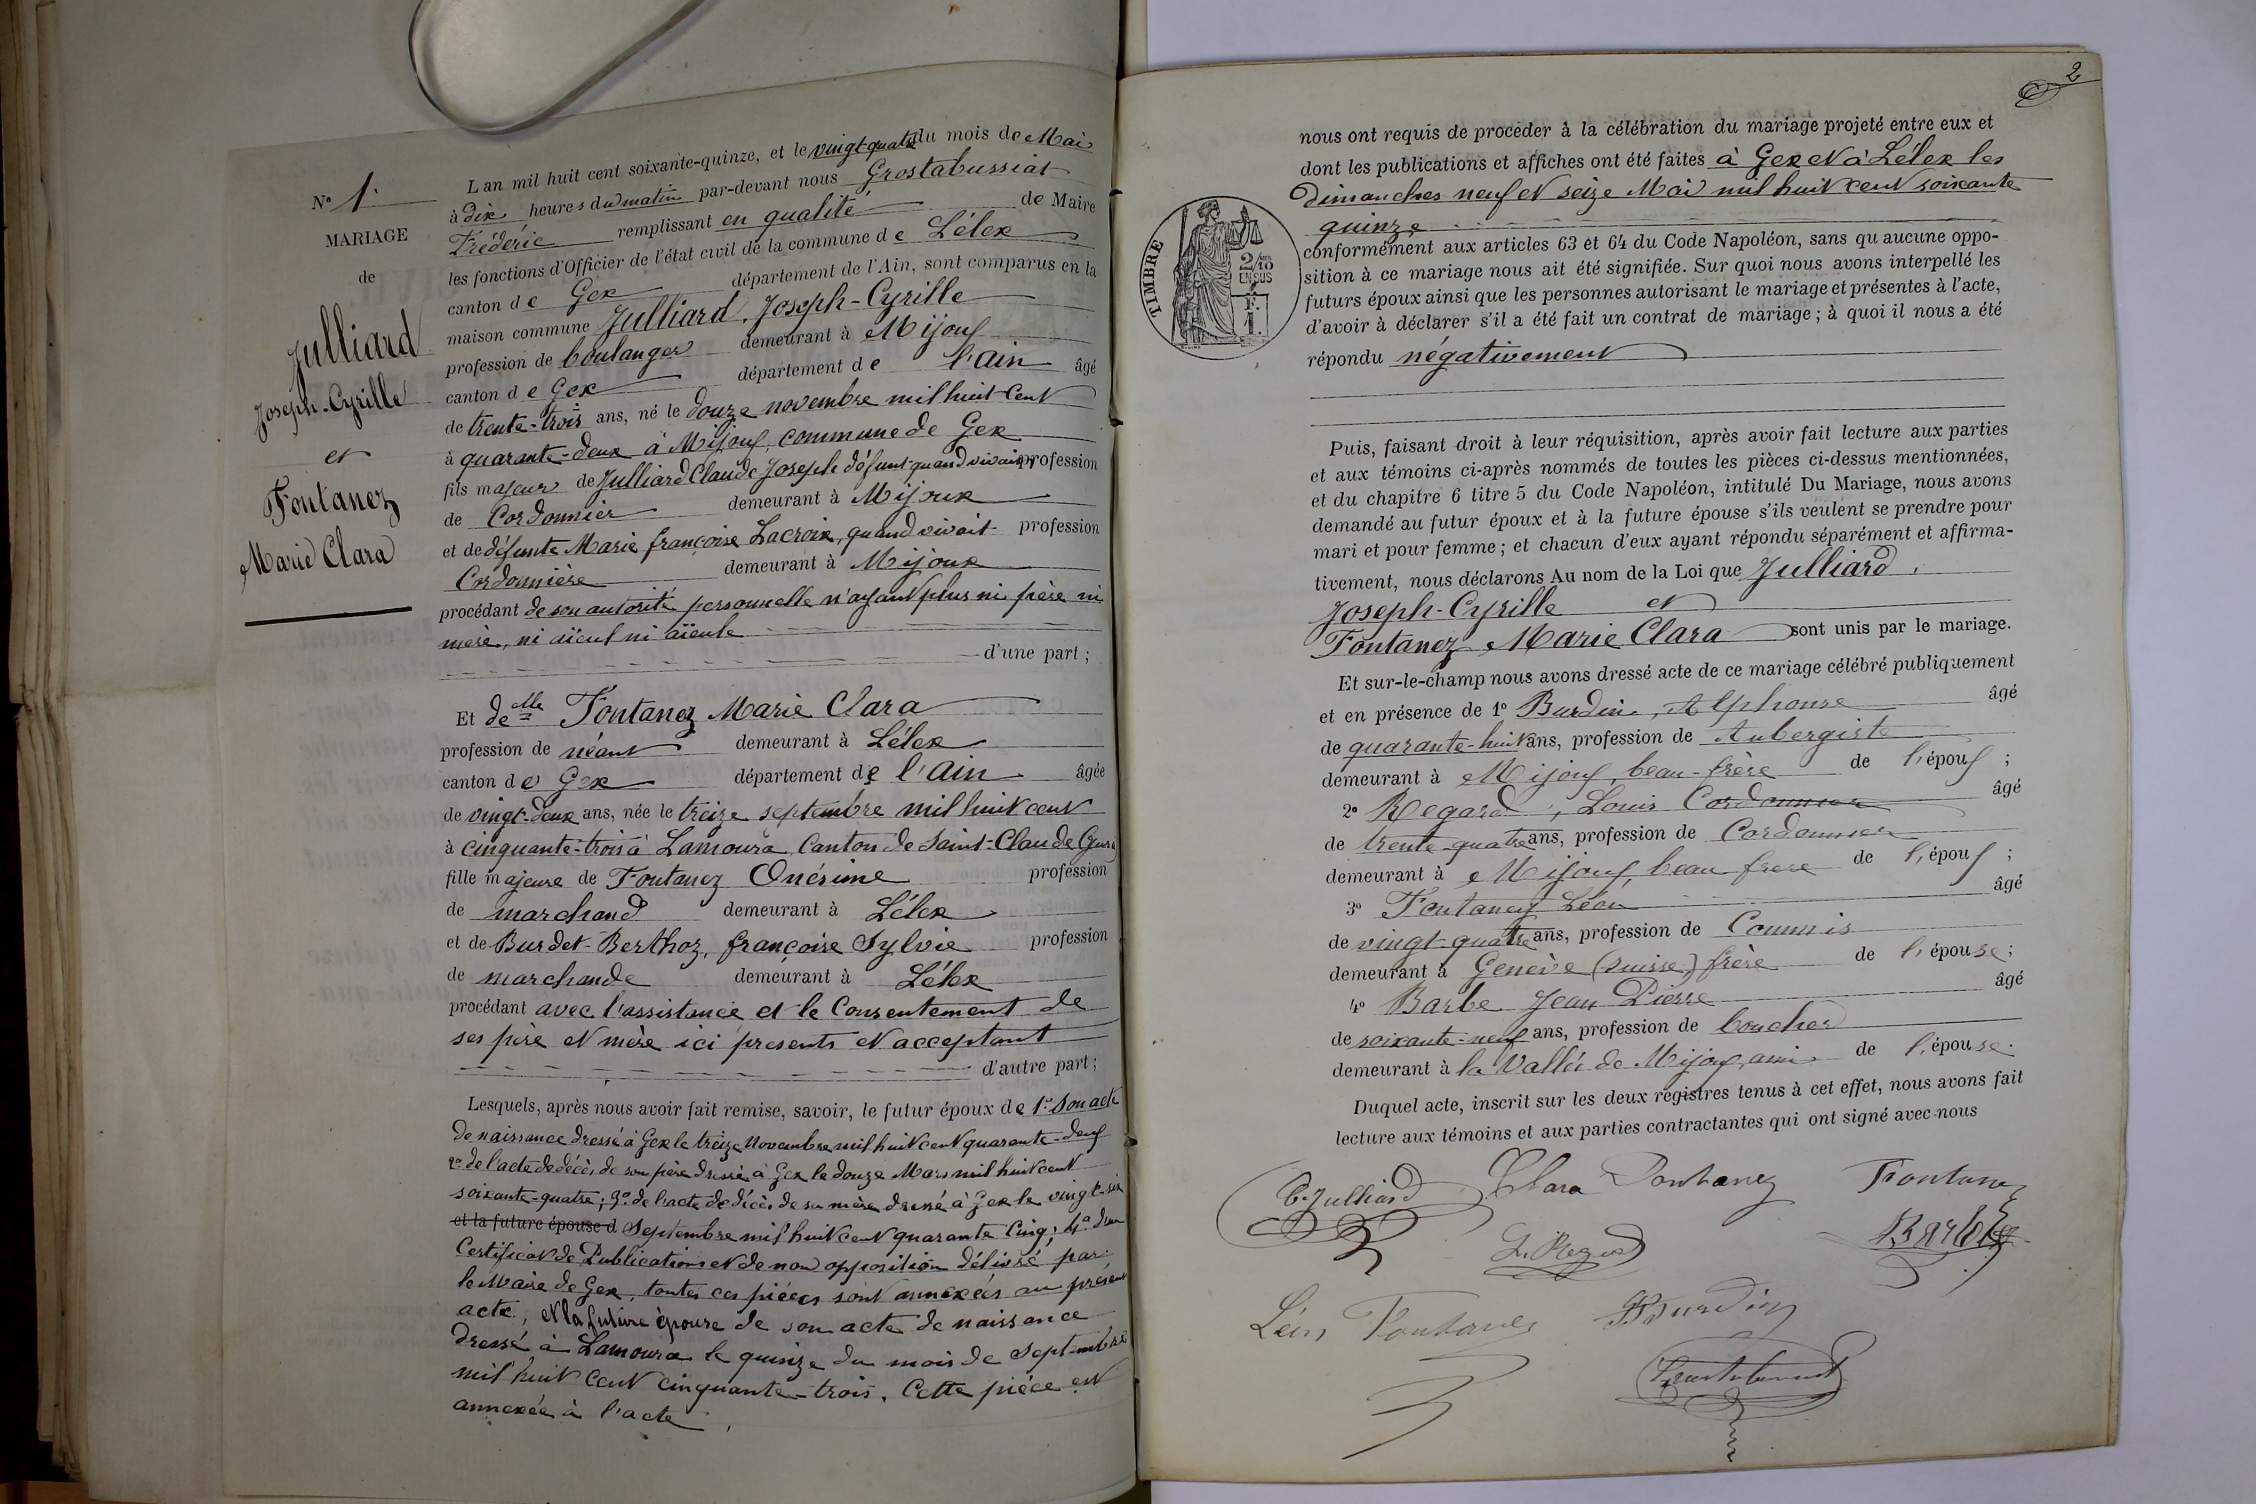 N° 1.
MARIAGE
de
Julliard
Joseph-Cyrille
et
Fontanez
Marie Clara
L an mil huit cent soixante-quinze, et le vingt-quatre du mois de Mai
à dix heures du matin par-devant nous Grostabussiat
Frédéric remplissant en qualité de Maire
les fonctions d'Officier de l'état civil de la commune d e Lélex
canton d e Gex département de l'Ain, sont comparus en la
maison commune Julliard, Joseph-Cyrille
profession de boulanger demeurant à Mijoux
canton d e Gex département d e l'ain âgé
de trente-trois ans, né le douze novembre mil huit cent
à quarante-deux à Mijoux, commune de Gex
fils majeur de Julliard Claude Joseph défunt quand vivait profession
de Cordonnier demeurant à Mijoux
et de défunte Marie françoise Lacroix, quand vivait profession
Cordonnière demeurant à Mijoux
procédant de son autorité personnelle n'ayant plus ni père ni
mère, ni aïeul ni aïeule
d'une part ;
Et de elle Fontanez Marie Clara
profession de néant demeurant à Lélex
canton d e Gex département de l'Ain âgée
de vingt-deux ans, née le treize septembre mil huit cent
à cinquante-trois à Lamoura, Canton de Saint-Claude (Jura)
fille majeure de Fontanez Onésime profession
de marchand demeurant à Lélex
et de Burdet-Berthoz, françoise Sylvie profession
de marchande demeurant à Lélex
procédant avec l'assistance et le Consentement de
ses père et mère ici présents et acceptant
d'autre part ;
Lesquels, après nous avoir fait remise, savoir, le futur époux de 1° Son acte
de naissance dressé à Gex le treize Novembre mil huit cent quarante-deux
2° de l'acte de décès de son père dressé à Gex le douze Mars mil huit cent
soixante-quatre ; 3° de l'acte de décès de sa mère dressé à Gex le vingt-six
et la future épouse d Septembre mil huit cent quarante Cinq ; 4° d'un
Certificat de Publications et de non opposition délivré par
le Maire de Gex, toutes ces pièces sont annexées au présent
acte, et la future épouse de son acte de naissance
dressé à Lamoura le quinze du mois de Septembre
mil huit cent cinquante-trois. Cette pièce est
annexée à l'acte
2
nous ont requis de procéder à la célébration du mariage projeté entre eux et
dont les publications et affiches ont été faites à Gex et à Lélex les
Dimanches neuf et seize Mai mil huit cent soixante
quinze
TIMBRE
2/10 EN SUS
F.
1.
conformément aux articles 63 et 64 du Code Napoléon, sans qu aucune oppo-
sition à ce mariage nous ait été signifiée. Sur quoi nous avons interpellé les
futurs époux ainsi que les personnes autorisant le mariage et présentes à l'acte,
d'avoir à déclarer s'il a été fait un contrat de mariage ; à quoi il nous a été
répondu négativement
Puis, faisant droit à leur réquisition, après avoir fait lecture aux parties
et aux témoins ci-après nommés de toutes les pièces ci-dessus mentionnées,
et du chapitre 6 titre 5 du Code Napoléon, intitulé Du Mariage, nous avons
demandé au futur époux et à la future épouse s'ils veulent se prendre pour
mari et pour femme ; et chacun d'eux ayant répondu séparément et affirma-
tivement, nous déclarons Au nom de la Loi que Julliard,
Joseph-Cyrille et
Fontanez Marie Clara sont unis par le mariage.
Et sur-le-champ nous avons dressé acte de ce mariage célébré publiquement
et en présence de 1° Burdin, Alphonse âgé
de quarante-huit ans, profession de Aubergiste
demeurant à Mijoux, beau-frère de l'époux ;
2° Regard, Louis Cordonnier âgé
de trente-quatre ans, profession de Cordonnier
demeurant à Mijoux, beau frère de l'époux ;
3° Fontanez Léon âgé
de vingt-quatre ans, profession de Commis
demeurant à Genève (Suisse) frère de l'épouse ;
4° Barbe Jean Pierre âgé
de soixante-neuf ans, profession de boucher
demeurant à la Vallée de Mijoux, ami de l'épouse.
Duquel acte, inscrit sur les deux registres tenus à cet effet, nous avons fait
lecture aux témoins et aux parties contractantes qui ont signé avec nous
C. Julliard Clara Fontanez Fontanez
L. Regard Barbe
Léon Fontanez Burdin
Grostabussiat